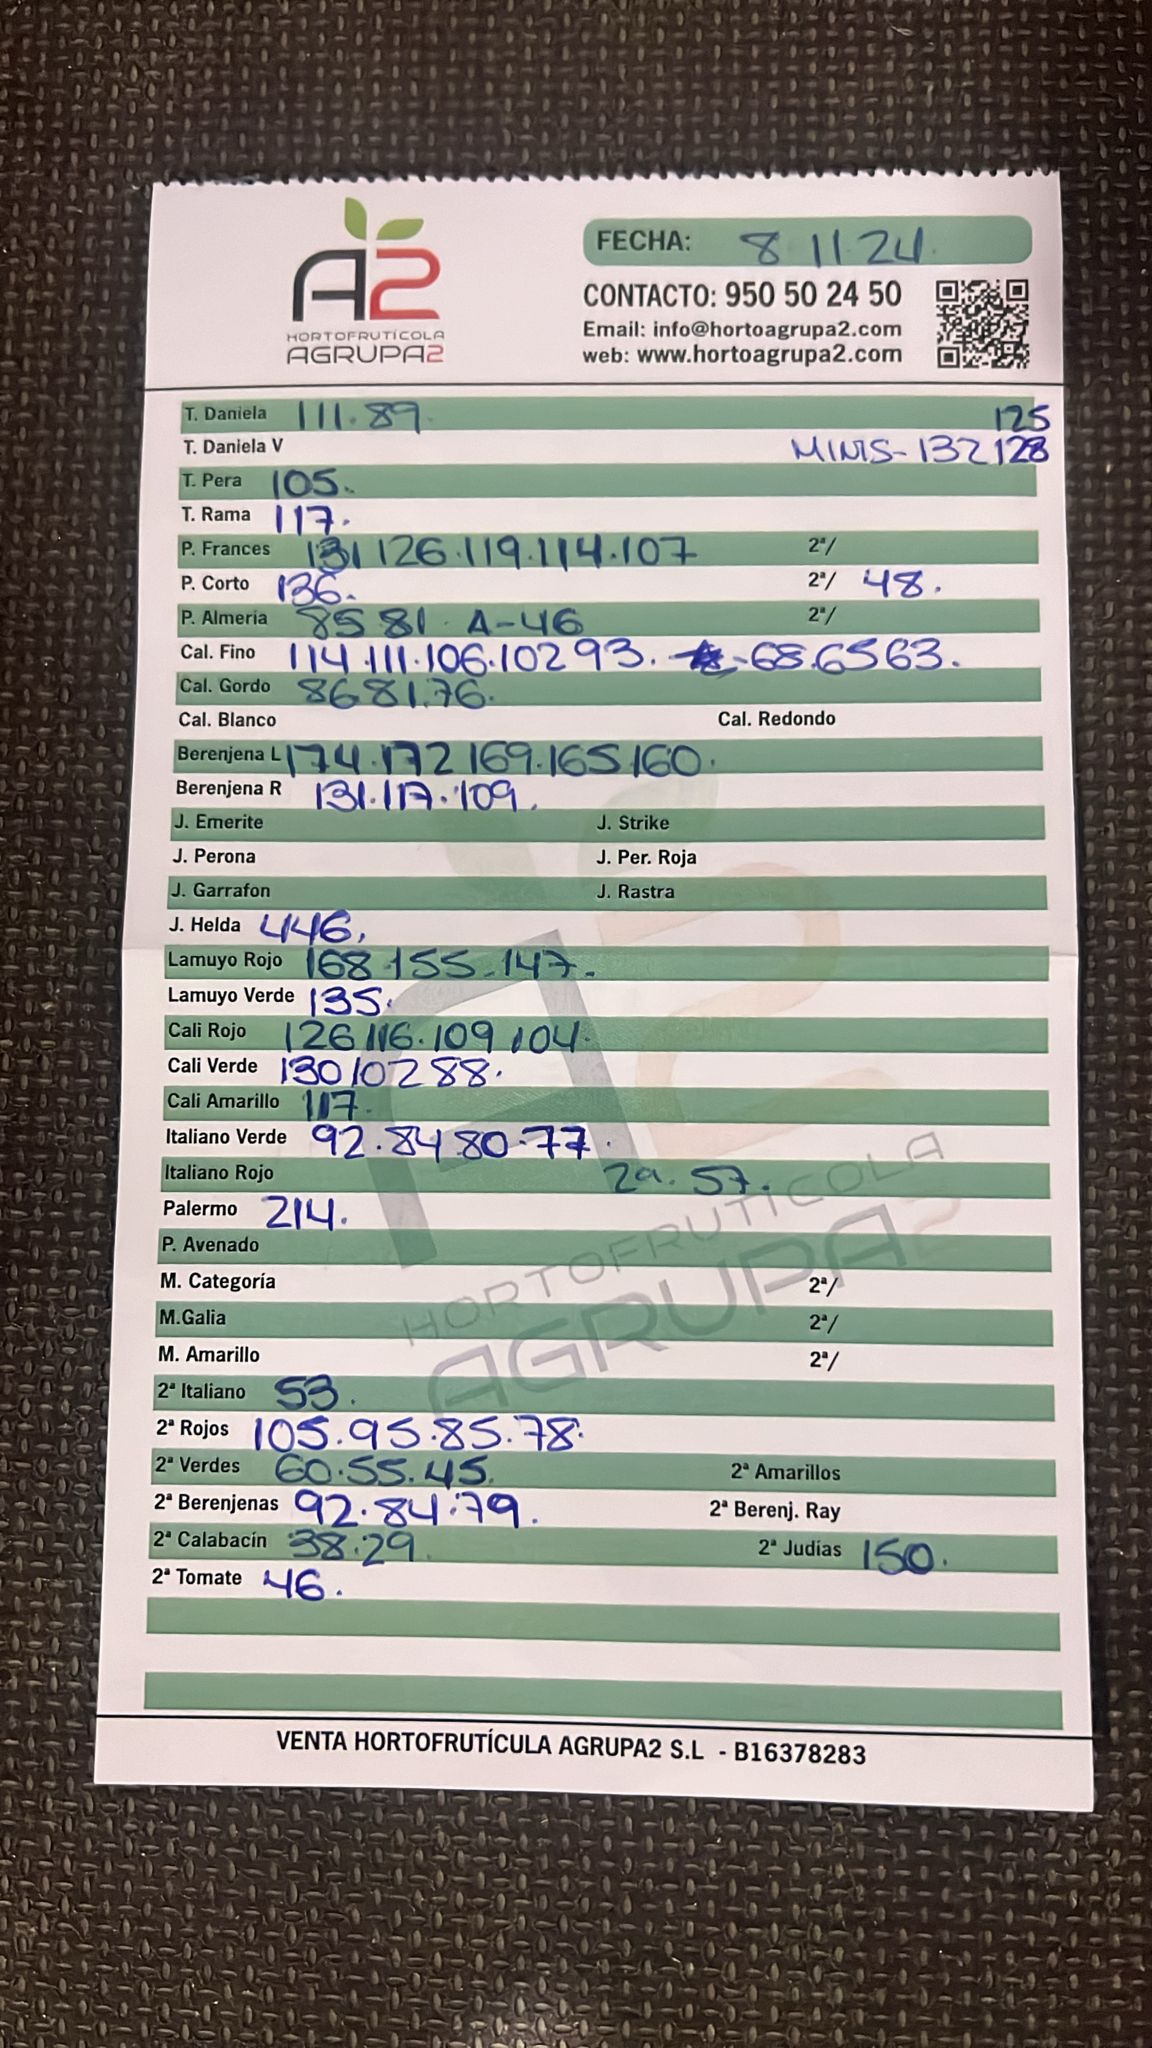 A2
HORTOFRUTÍCOLA
AGRUPA2
FECHA: 8 11.24.
CONTACTO: 950 50 24 50
Email: info@hortoagrupa2.com
web: www.hortoagrupa2.com
T. Daniela 111.89. 125
T. Daniela V MINIS-132 128
T. Pera 105.
T. Rama 117.
P. Frances 131 126.119.114.107 2ª/
P. Corto 136. 2ª/ 48.
P. Almería 85 81. A-46 2ª/
Cal. Fino 114.111.106.102 93. -68.65 63.
Cal. Gordo 86 81.76.
Cal. Blanco Cal. Redondo
Berenjena L 174.172 169.165 160.
Berenjena R 131.117.109.
J. Emerite J. Strike
J. Perona J. Per. Roja
J. Garrafon J. Rastra
J. Helda 446.
Lamuyo Rojo 168.155.147.
Lamuyo Verde 135.
Cali Rojo 126 116.109 104.
Cali Verde 130 102 88.
Cali Amarillo 117.
Italiano Verde 92.84 80.77.
Italiano Rojo 2a. 57.
Palermo 214.
P. Avenado
M. Categoría 2ª/
M.Galia 2ª/
M. Amarillo 2ª/
2ª Italiano 53.
2ª Rojos 105.95.85.78.
2ª Verdes 60.55.45. 2ª Amarillos
2ª Berenjenas 92.84.79. 2ª Berenj. Ray
2ª Calabacín 38.29. 2ª Judías 150.
2ª Tomate 46.
HORTOFRUTICOLA
AGRUPA2
VENTA HORTOFRUTÍCULA AGRUPA2 S.L - B16378283